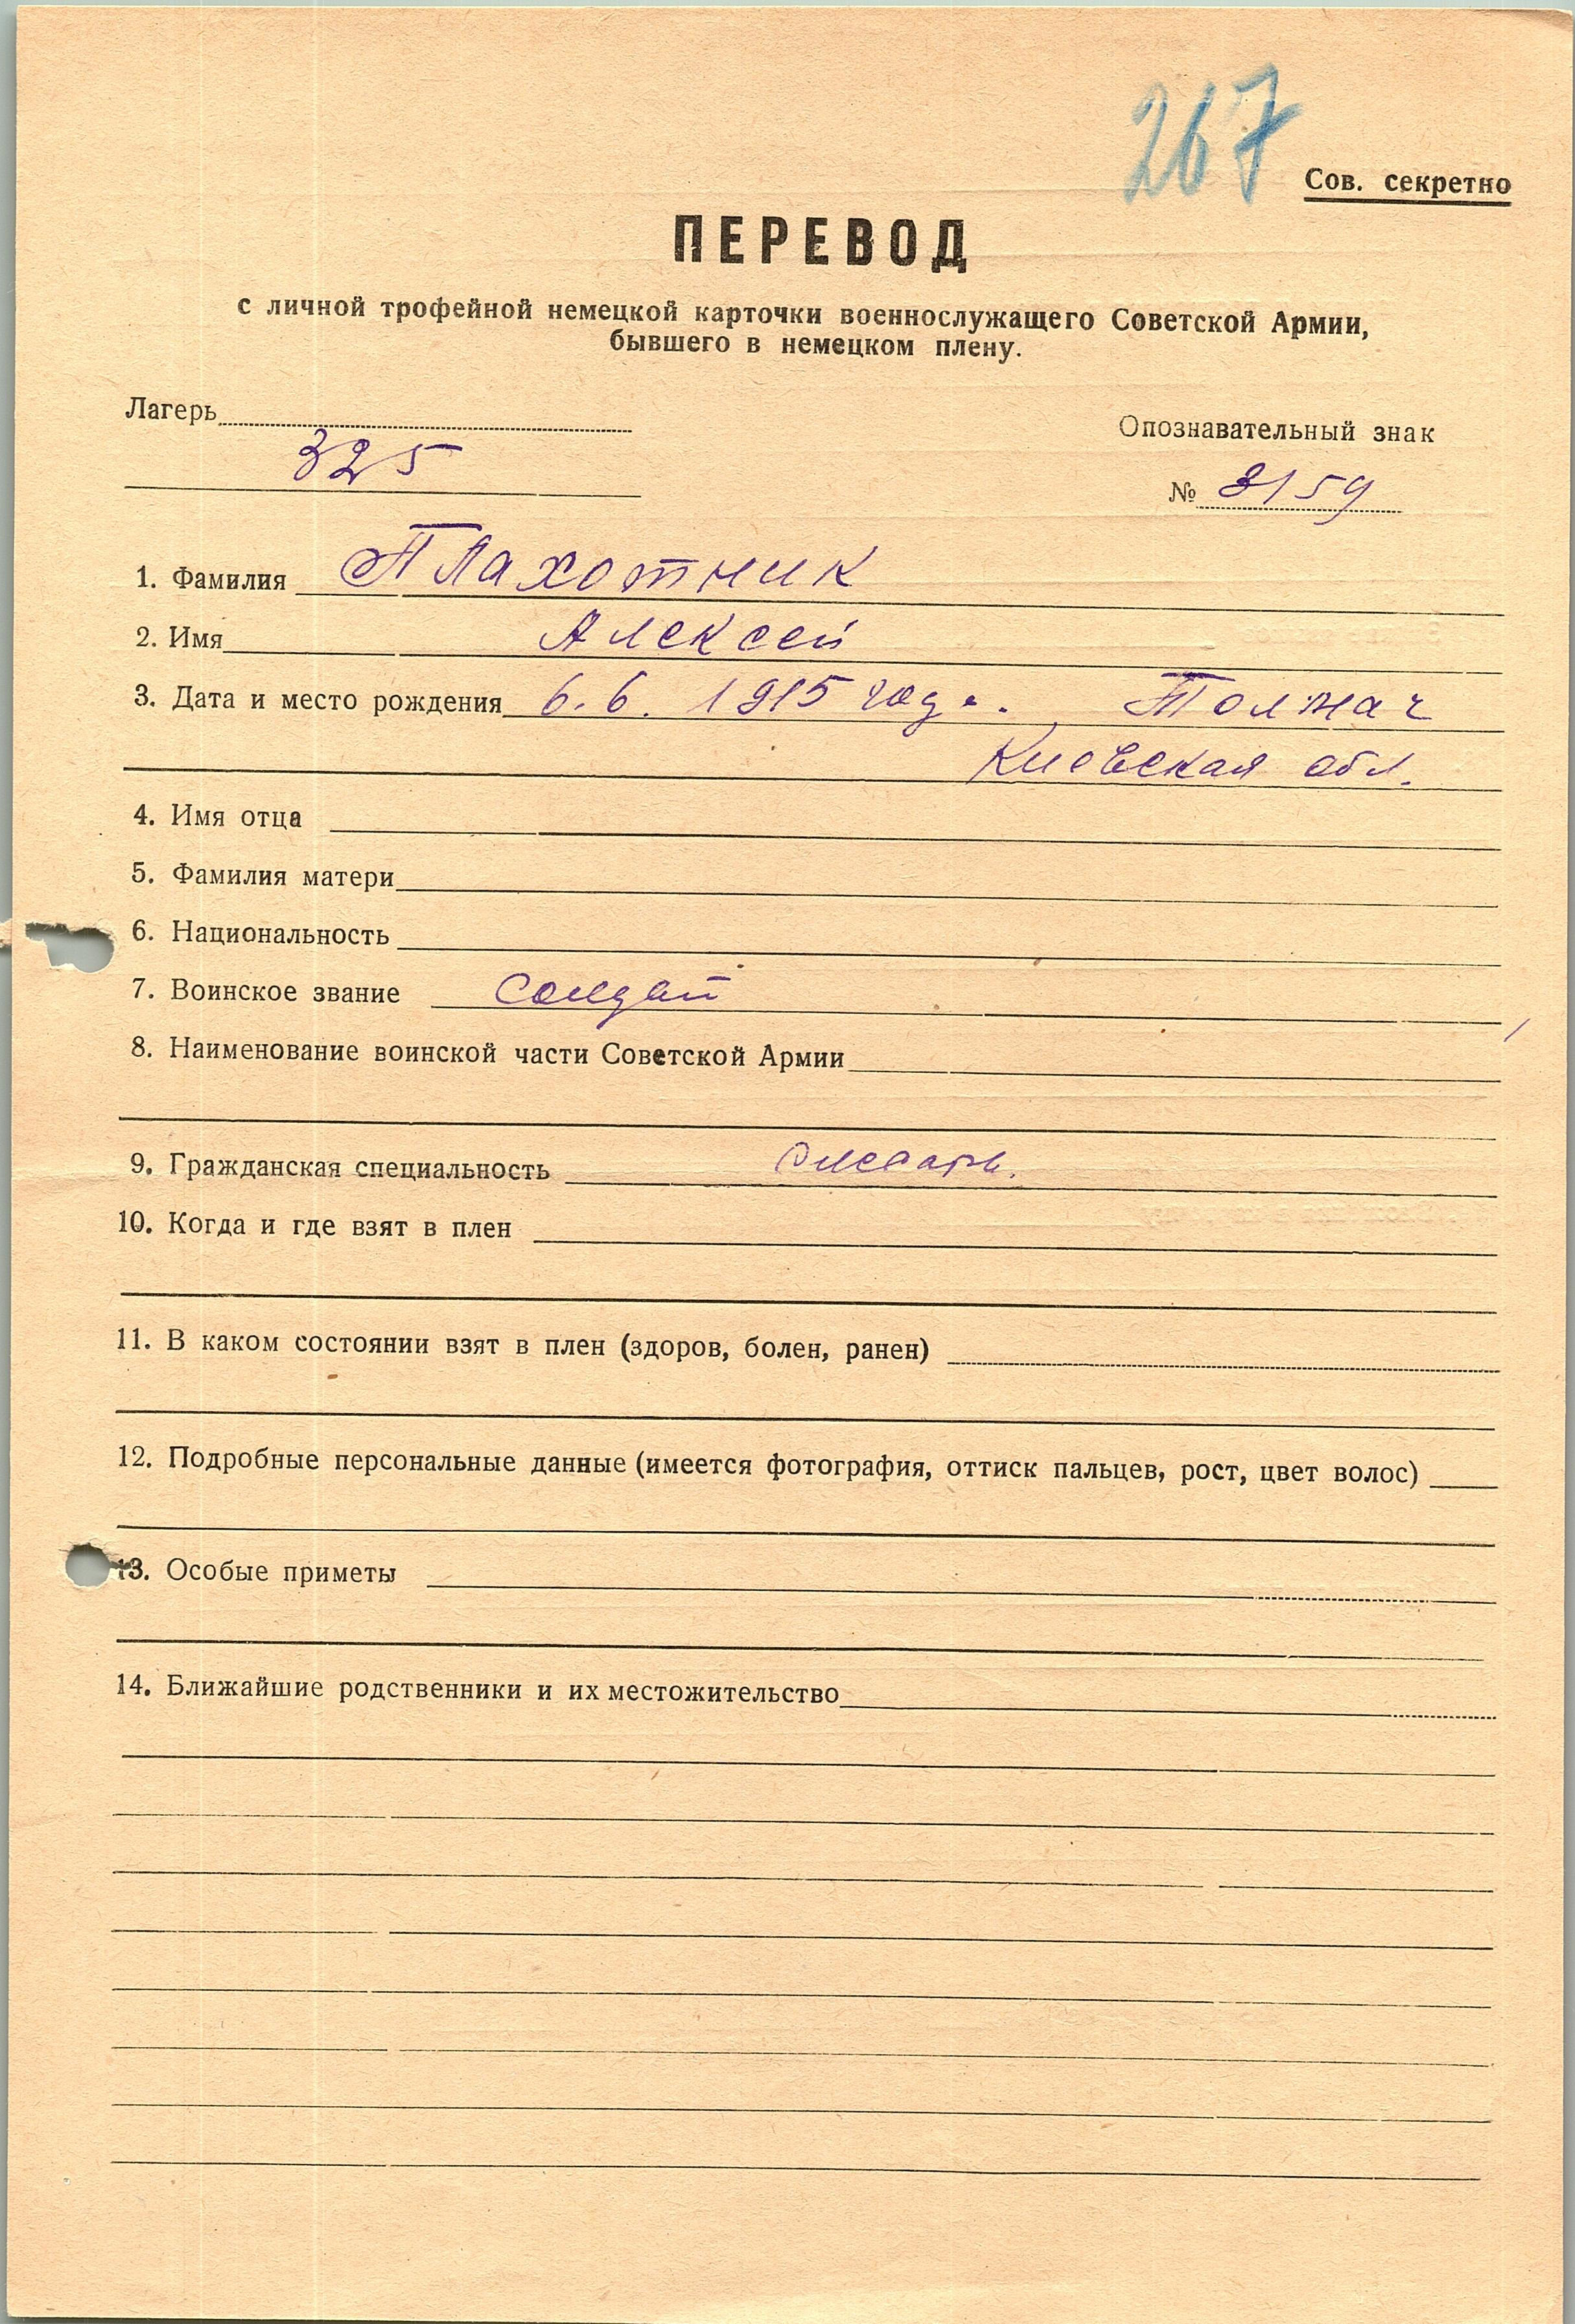 267
Сов. секретно
ПЕРЕВОД
с личной трофейной немецкой карточки военнослужащего Советской Армии,
бывшего в немецком плену.
Лагерь
Опознавательный знак
325
№ 3159
1. Фамилия Плахотник
2. Имя Алексей
3. Дата и место рождения 6.6. 1915 год.
Киевская обл.
4. Имя отца
5. Фамилия матери
6. Национальность
7. Воинское звание солдат
8. Наименование воинской части Советской Армии
9. Гражданская специальность слесарь.
10. Когда и где взят в плен
11. В каком состоянии взят в плен (здоров, болен, ранен)
12. Подробные персональные данные (имеется фотография, оттиск пальцев, рост, цвет волос)
13. Особые приметы
14. Ближайшие родственники и их местожительство